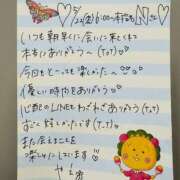 5/22(金)6:00〜本指名Nさん
いつも朝早くに会いに来てくれ
本当にありがとう〜(ToT)♡
今回もとーっても楽しかった〜♡
優しい時間をありがとう
心配のLINEもわざわざありがとう(ToT)
すごく嬉しかったです(ToT)♡
また会えることを
楽しみにしています♡